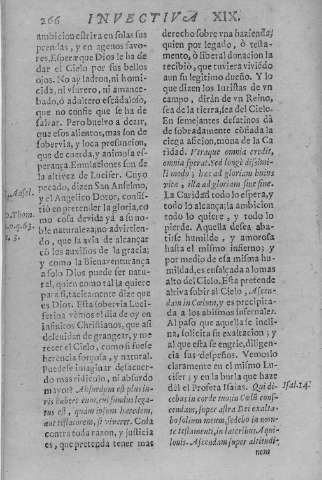 266 INVECTIVA XIX.
ambicion estriva en solas sus
prendas, y en agenos favo-
res. Espera que Dios le ha de
dar el Cielo por sus bellos
ojos. No ay ladron, ni homi-
cida, ni vsurero, ni amance-
bado, ò adultero escãdaloso,
que no confie que se ha de
salvar. Pero buelvo a decir,
que esos alientos, mas son de
sobervia, y loca presuncion,
que de cuerda, y animosa es-
perança. Emulaciones son de
la altivez de Lucifer. Cuyo
pecado, dizen San Anselmo,
y el Angelico Dotor, consis-
tiò en pretender la gloria, co
mo cosa devida yà a su no-
ble naturaleza; no advirtien-
do, que la avia de alcançar
cõ los auxilios de la gracia;
y como la Bienaventurança
a solo Dios puede ser natu-
ral, quien como tal la quiere
para si, tacitamente dize que
es Dios. Esta sobervia Luci-
ferina vemos el dia de oy en
infinitos Christianos, que asi
descuidan de grangear, y me
recer el Cielo, como si fuese
herencia forçosa, y natural.
Puedese imaginar desacuer-
do mas ridiculo, ni absurdo
mayor? Absurdum est plus iu-
ris habere eum, cui fundus lega-
tus est, quàm ipsum hæredem,
aut testatorem, si viveret. Cosa
contra toda razon, y justicia
es, que pretenda tener mas
S. Ansel.
D. Thom.
1. p. q. 63.
a. 3.
derecho sobre vna hazienda;
quien por legado, ò testa-
mento, ò liberal donacion la
recibiò, que tuviera viviẽdo
aun su legitimo dueño. Y lo
que dizen los Iuristas de vn
campo, diràn de vn Reino,
sea de la tierra, sea del Cielo.
En semejantes desatinos dà
de sobradamente cõfiada la
ciega aficion, mona de la Ca
ridad. Vtraque omnia credit,
omnia sperat. Sed longè dissimi-
li modo; hæc ad gloriam huius
vitæ, illa ad gloriam sine fine.
La Caridad todo lo espera, y
todo lo alcança; la ambicion
todo lo quiere, y todo lo
pierde. Aquella desea aba-
tirse humilde, y amorosa
hasta el mismo infierno; y
por medio de esa misma hu-
mildad, es ensalçada a lo mas
alto del Cielo. Esta pretende
altiva subir al Cielo, Ascen-
dam in Cœlum, y es precipita-
da a los abismos infernales.
Al paso que aquella se incli-
na, solicita su exaltacion; y
al que esta se engrie, diligen-
cia sus despeños. Vemoslo
claramente en el mismo Lu-
cifer; y en la burla que haze
del el Profeta Isaias. Qui di-
cebas in corde tuo; in Cœlũ cons-
cendam, super astra Dei exalta-
bo solium meum, sedebo in mon-
te testamenti, in lateribus Aqui-
lonis. Ascendam super altitudi-
nem
Isai. 14.